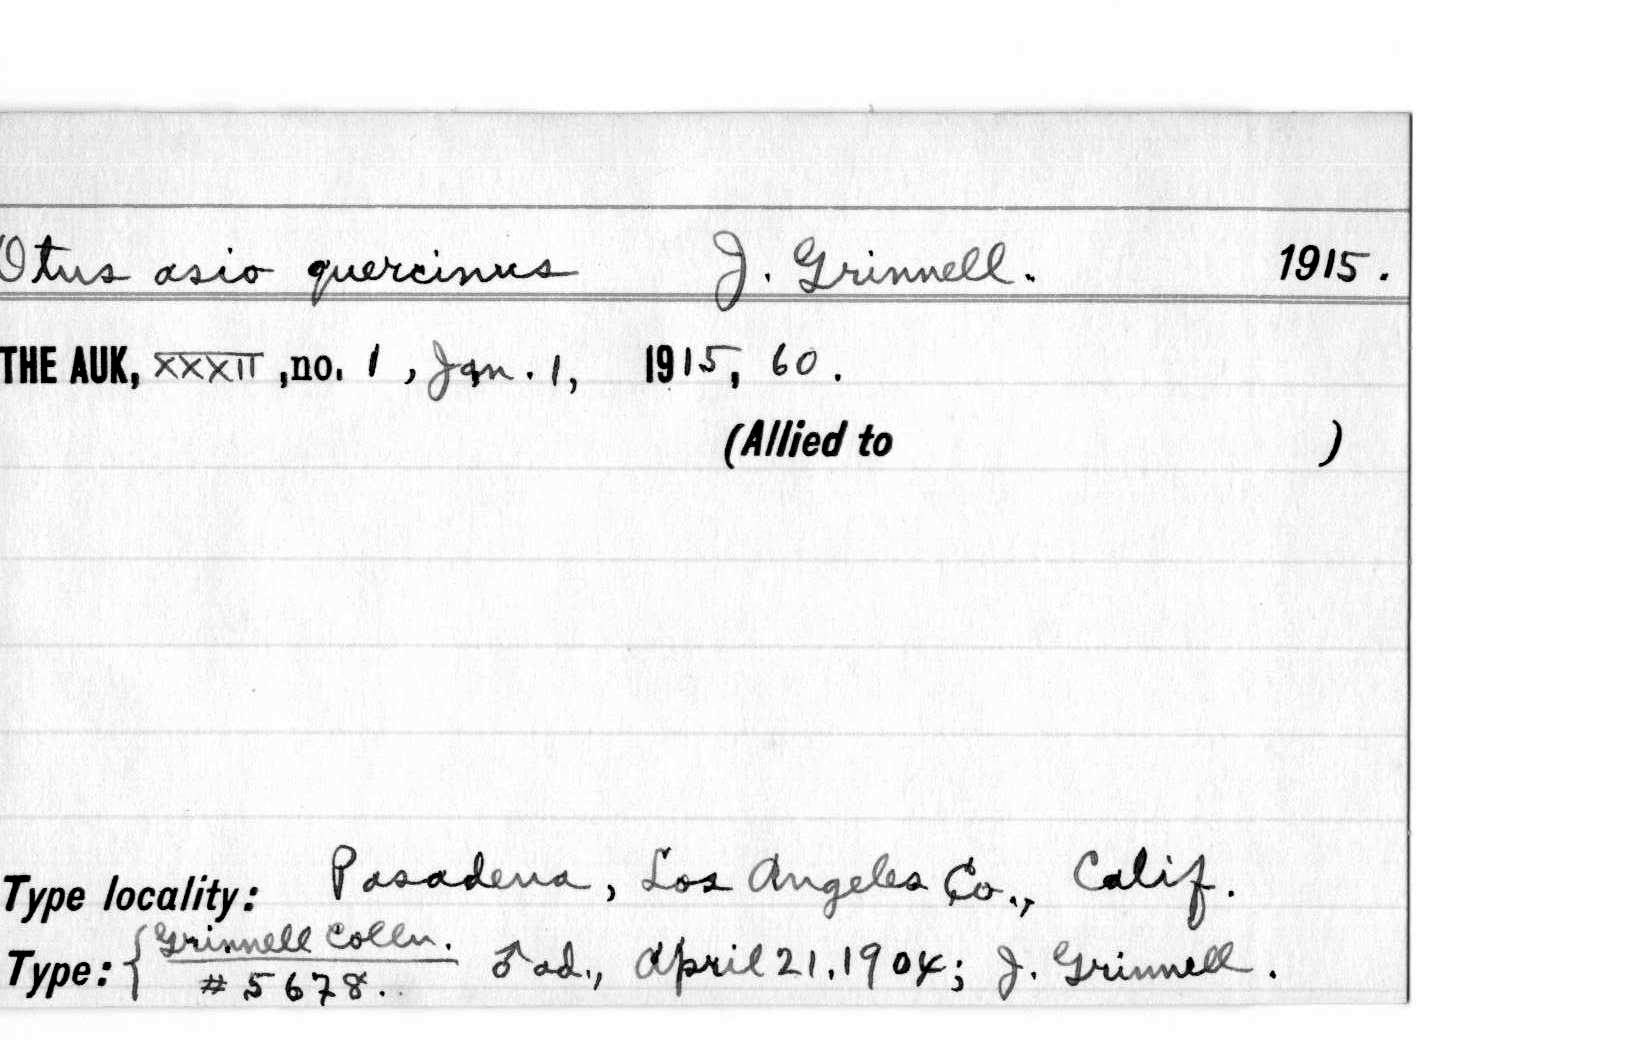 Otus asio quercinus J. Grinnell. 1915.
THE AUK, XXXII, no. 1, Jan. 1, 1915, 60.
(Allied to )
Type locality: Pasadena, Los Angeles Co., Calif.
Type: { Grinnell Colln. ♂ ad., April 21, 1904; J. Grinnell.
#5678.